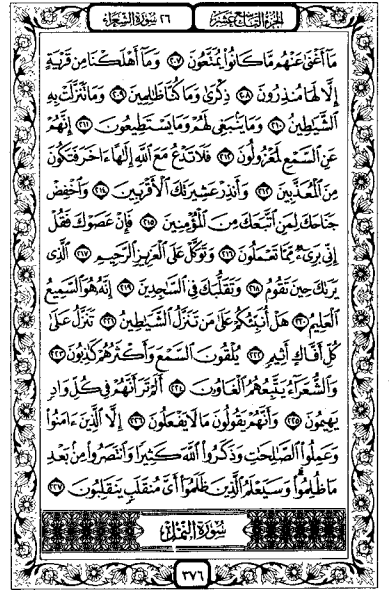 الجزء التاسع عشر ٢٦ سورة الشعراء
مَآ أَغْنَىٰ عَنْهُم مَّا كَانُوا۟ يُمَتَّعُونَ ٢٠٧ وَمَآ أَهْلَكْنَا مِن قَرْيَةٍ
إِلَّا لَهَا مُنذِرُونَ ٢٠٨ ذِكْرَىٰ وَمَا كُنَّا ظَٰلِمِينَ ٢٠٩ وَمَا تَنَزَّلَتْ بِهِ
ٱلشَّيَٰطِينُ ٢١٠ وَمَا يَنۢبَغِى لَهُمْ وَمَا يَسْتَطِيعُونَ ٢١١ إِنَّهُمْ
عَنِ ٱلسَّمْعِ لَمَعْزُولُونَ ٢١٢ فَلَا تَدْعُ مَعَ ٱللَّهِ إِلَٰهًا ءَاخَرَ فَتَكُونَ
مِنَ ٱلْمُعَذَّبِينَ ٢١٣ وَأَنذِرْ عَشِيرَتَكَ ٱلْأَقْرَبِينَ ٢١٤ وَٱخْفِضْ
جَنَاحَكَ لِمَنِ ٱتَّبَعَكَ مِنَ ٱلْمُؤْمِنِينَ ٢١٥ فَإِنْ عَصَوْكَ فَقُلْ
إِنِّى بَرِىٓءٌ مِّمَّا تَعْمَلُونَ ٢١٦ وَتَوَكَّلْ عَلَى ٱلْعَزِيزِ ٱلرَّحِيمِ ٢١٧ ٱلَّذِى
يَرَىٰكَ حِينَ تَقُومُ ٢١٨ وَتَقَلُّبَكَ فِى ٱلسَّٰجِدِينَ ٢١٩ إِنَّهُۥ هُوَ ٱلسَّمِيعُ
ٱلْعَلِيمُ ٢٢٠ هَلْ أُنَبِّئُكُمْ عَلَىٰ مَن تَنَزَّلُ ٱلشَّيَٰطِينُ ٢٢١ تَنَزَّلُ عَلَىٰ
كُلِّ أَفَّاكٍ أَثِيمٍ ٢٢٢ يُلْقُونَ ٱلسَّمْعَ وَأَكْثَرُهُمْ كَٰذِبُونَ ٢٢٣
وَٱلشُّعَرَآءُ يَتَّبِعُهُمُ ٱلْغَاوُۥنَ ٢٢٤ أَلَمْ تَرَ أَنَّهُمْ فِى كُلِّ وَادٍ
يَهِيمُونَ ٢٢٥ وَأَنَّهُمْ يَقُولُونَ مَا لَا يَفْعَلُونَ ٢٢٦ إِلَّا ٱلَّذِينَ ءَامَنُوا۟
وَعَمِلُوا۟ ٱلصَّٰلِحَٰتِ وَذَكَرُوا۟ ٱللَّهَ كَثِيرًا وَٱنتَصَرُوا۟ مِنۢ بَعْدِ
مَا ظُلِمُوا۟ وَسَيَعْلَمُ ٱلَّذِينَ ظَلَمُوٓا۟ أَىَّ مُنقَلَبٍ يَنقَلِبُونَ ٢٢٧
سُورَةُ النَّمْلِ
٣٧٦